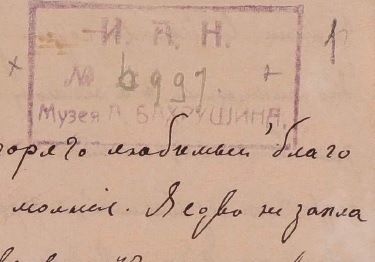 И. А. Н. 1
№ 6997.
Музея А. БАХРУШИНА.
горячо любимый благо
Я едва не запла